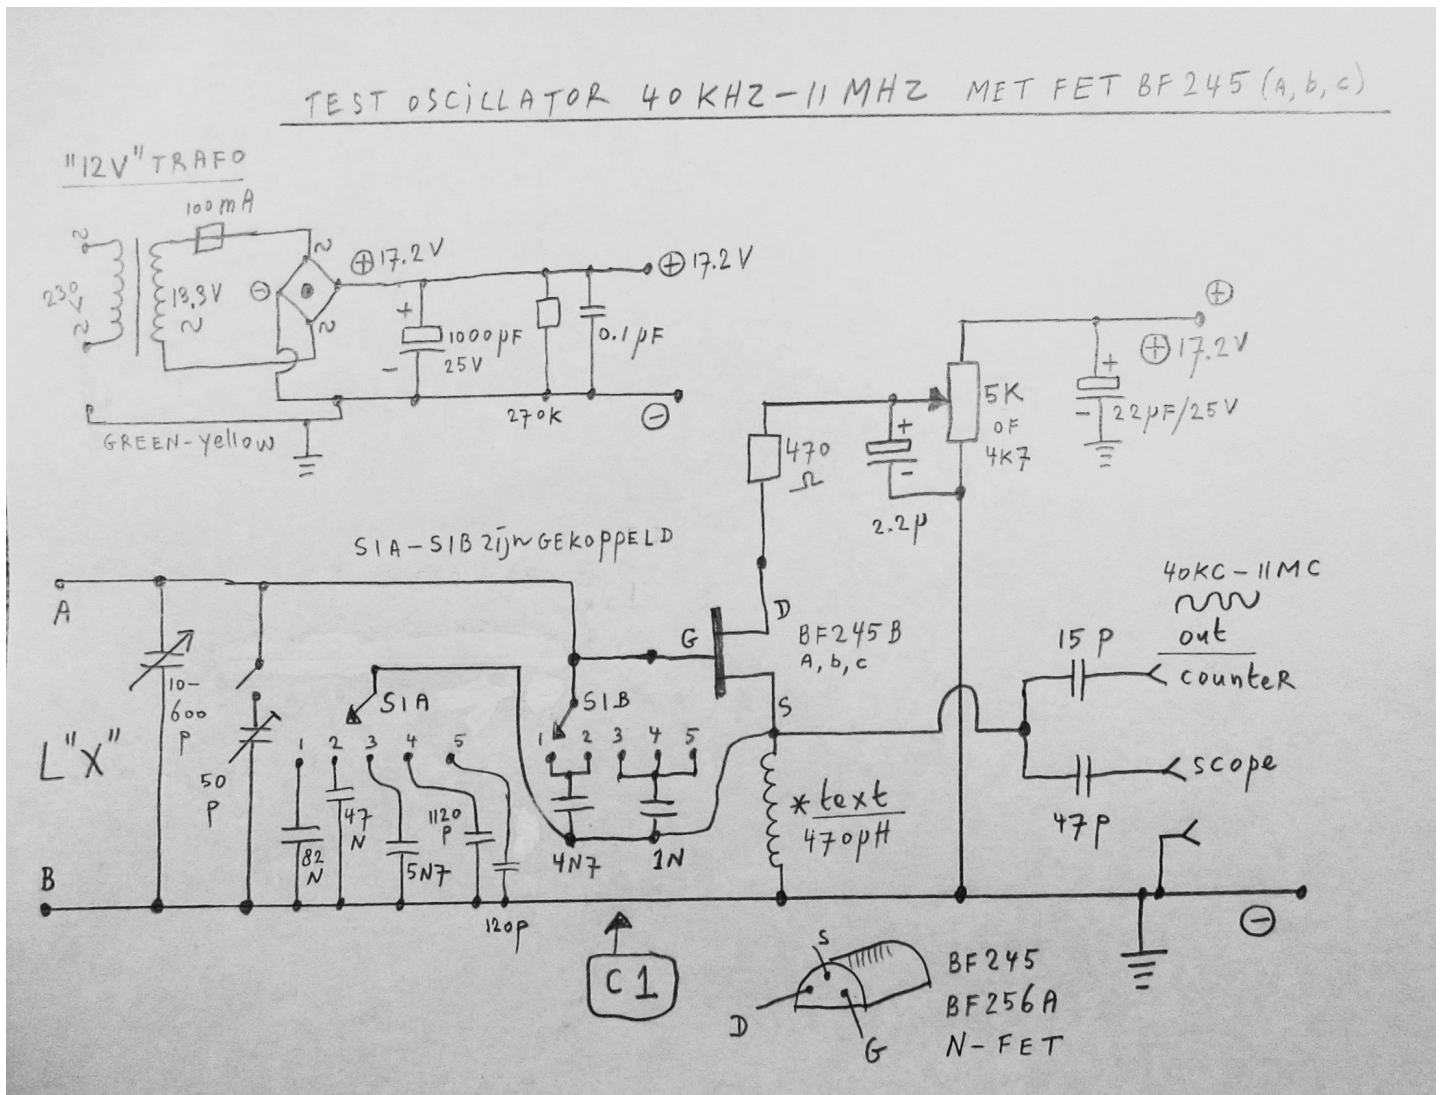 TEST OSCILLATOR 40 KHZ-11 MHZ MET FET BF245 (A, b, c)
"12V" TRAFO
100mA
230 V
13,3V
⊕17.2V
⊖
+
1000µF
25V
-
270K
0.1µF
⊕17.2V
⊖
GREEN-yellow
⊕
⊕17.2V
+
22µF/25V
-
5K
OF
4K7
470
Ω
+
-
2.2µ
S1A-S1B zijn GEKOPPELD
A
B
L"X"
10-
600
P
50
P
S1A
1 2 3 4 5
82
N
47
N
5N7
1120
P
120p
S1B
1 2 3 4 5
4N7
1N
G
D
S
BF245B
A, b, c
*text
470µH
40KC-11MC
out
counteR
15 P
scope
47P
⊖
C1
S
D
G
BF245
BF256A
N-FET